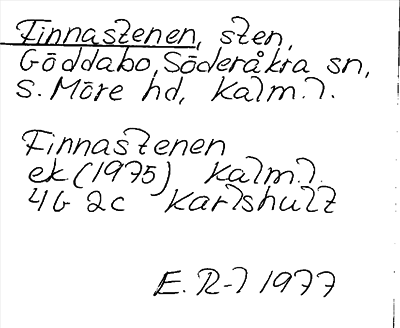 Finnastenen, sten,
Göddabo, Söderåkra sn,
S. Möre hd, Kalm. l.
Finnastenen
ek. (1975) Kalm. l.
4G 2c Karlshult
E. R-l 1977